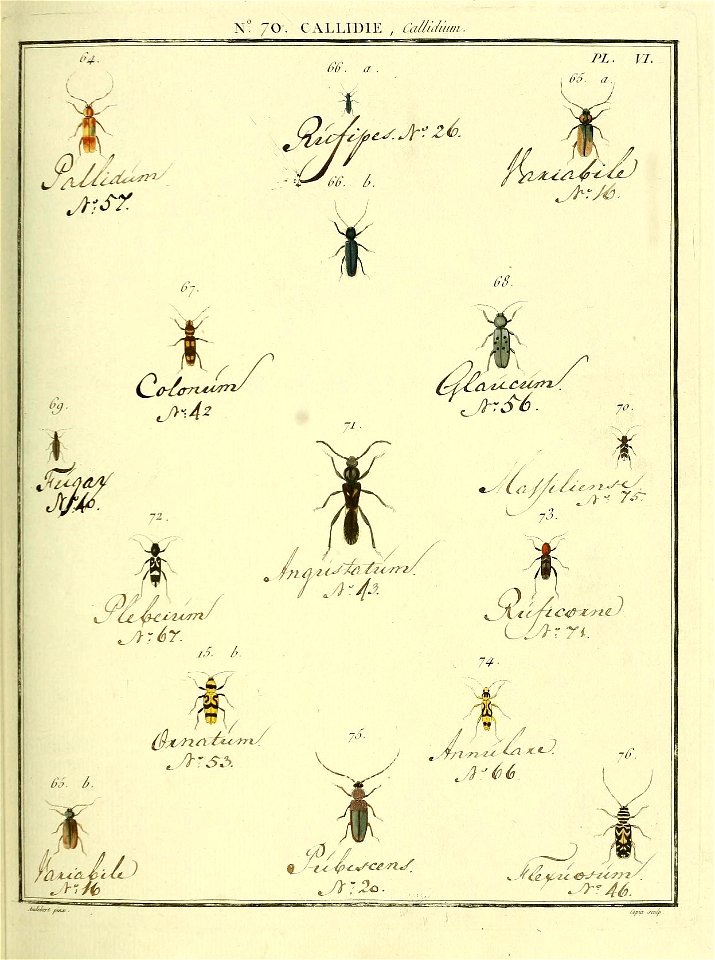 Nº. 70. CALLIDIE, Callidium.
PL. VI.
64.
Pallidum
Nº. 57.
66. a.
Rufipes. Nº 26.
65. a.
Variabile
Nº. 16.
66. b.
67.
Colonum
Nº. 42
68.
Glaucum.
Nº. 56.
69.
Fugax
Nº. 40.
71.
Angustatum.
Nº. 43.
70.
Massiliense
Nº. 75.
72.
Plebeium
Nº. 67.
73.
Ruficorne
Nº. 71.
15. b.
Ornatum.
Nº. 53.
74.
Annulare.
Nº. 66
65. b.
Variabile
Nº. 16
75.
Pubescens.
Nº. 20.
76.
Flexuosum.
Nº. 46.
Audebert pinx.
Copia sculp.